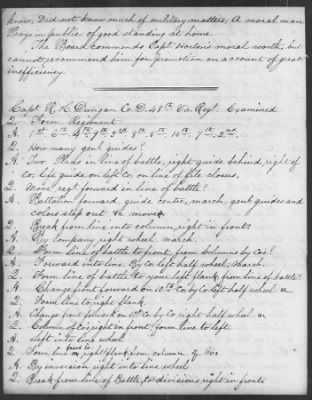 know, Did not know much of military matters, A moral man
Prays in public of good standing at home.
The Board commends Capt Hortons moral worth, but
cannot recommend him for promotion on account of great
inefficiency.
Capt R. H. Dungan Co. D. 48th Va Regt. Examined
Q. Form Regiment
A. 1st 6th 4th 9th 3rd 8th 5th 10th 7th 2nd.
Q. How many gent guides?
A. Two. Placs in line of battle, right guide behind, right of
co. left guide on left co on line of file closers.
Q. Move regt forward in line of battle?
A. Battalion forward, guide centre, march, gent guides and
colors step out &c move
Q. Break from line into column, right in front?
A. By company right wheel. march.
Q. Form line of battle to front, from columns by cos?
A. Forward into line By Co left half wheel, March.
Q. Form line of battle to your left flank from line of battle?
A. Change front forward on 10th Co by co left half wheel &
Q. Form line to right flank
A. Change front forward on 1st Co by Co right half wheel &
Q. Column of co's right in front, form line to left
A. left into line wheel
Q. Form line faced to right flank from column of Co's
A. By inversion right into line wheel
Q. Break from line of Battle, to divisions right in front